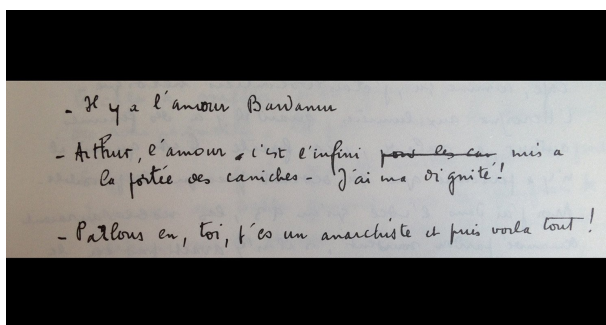 - Il y a l'amour Bardamu
- Arthur, l'amour, c'est l'infini pour les can mis a
la portée des caniches - J'ai ma dignité !
- Parlons en, toi, t'es un anarchiste et puis voila tout !